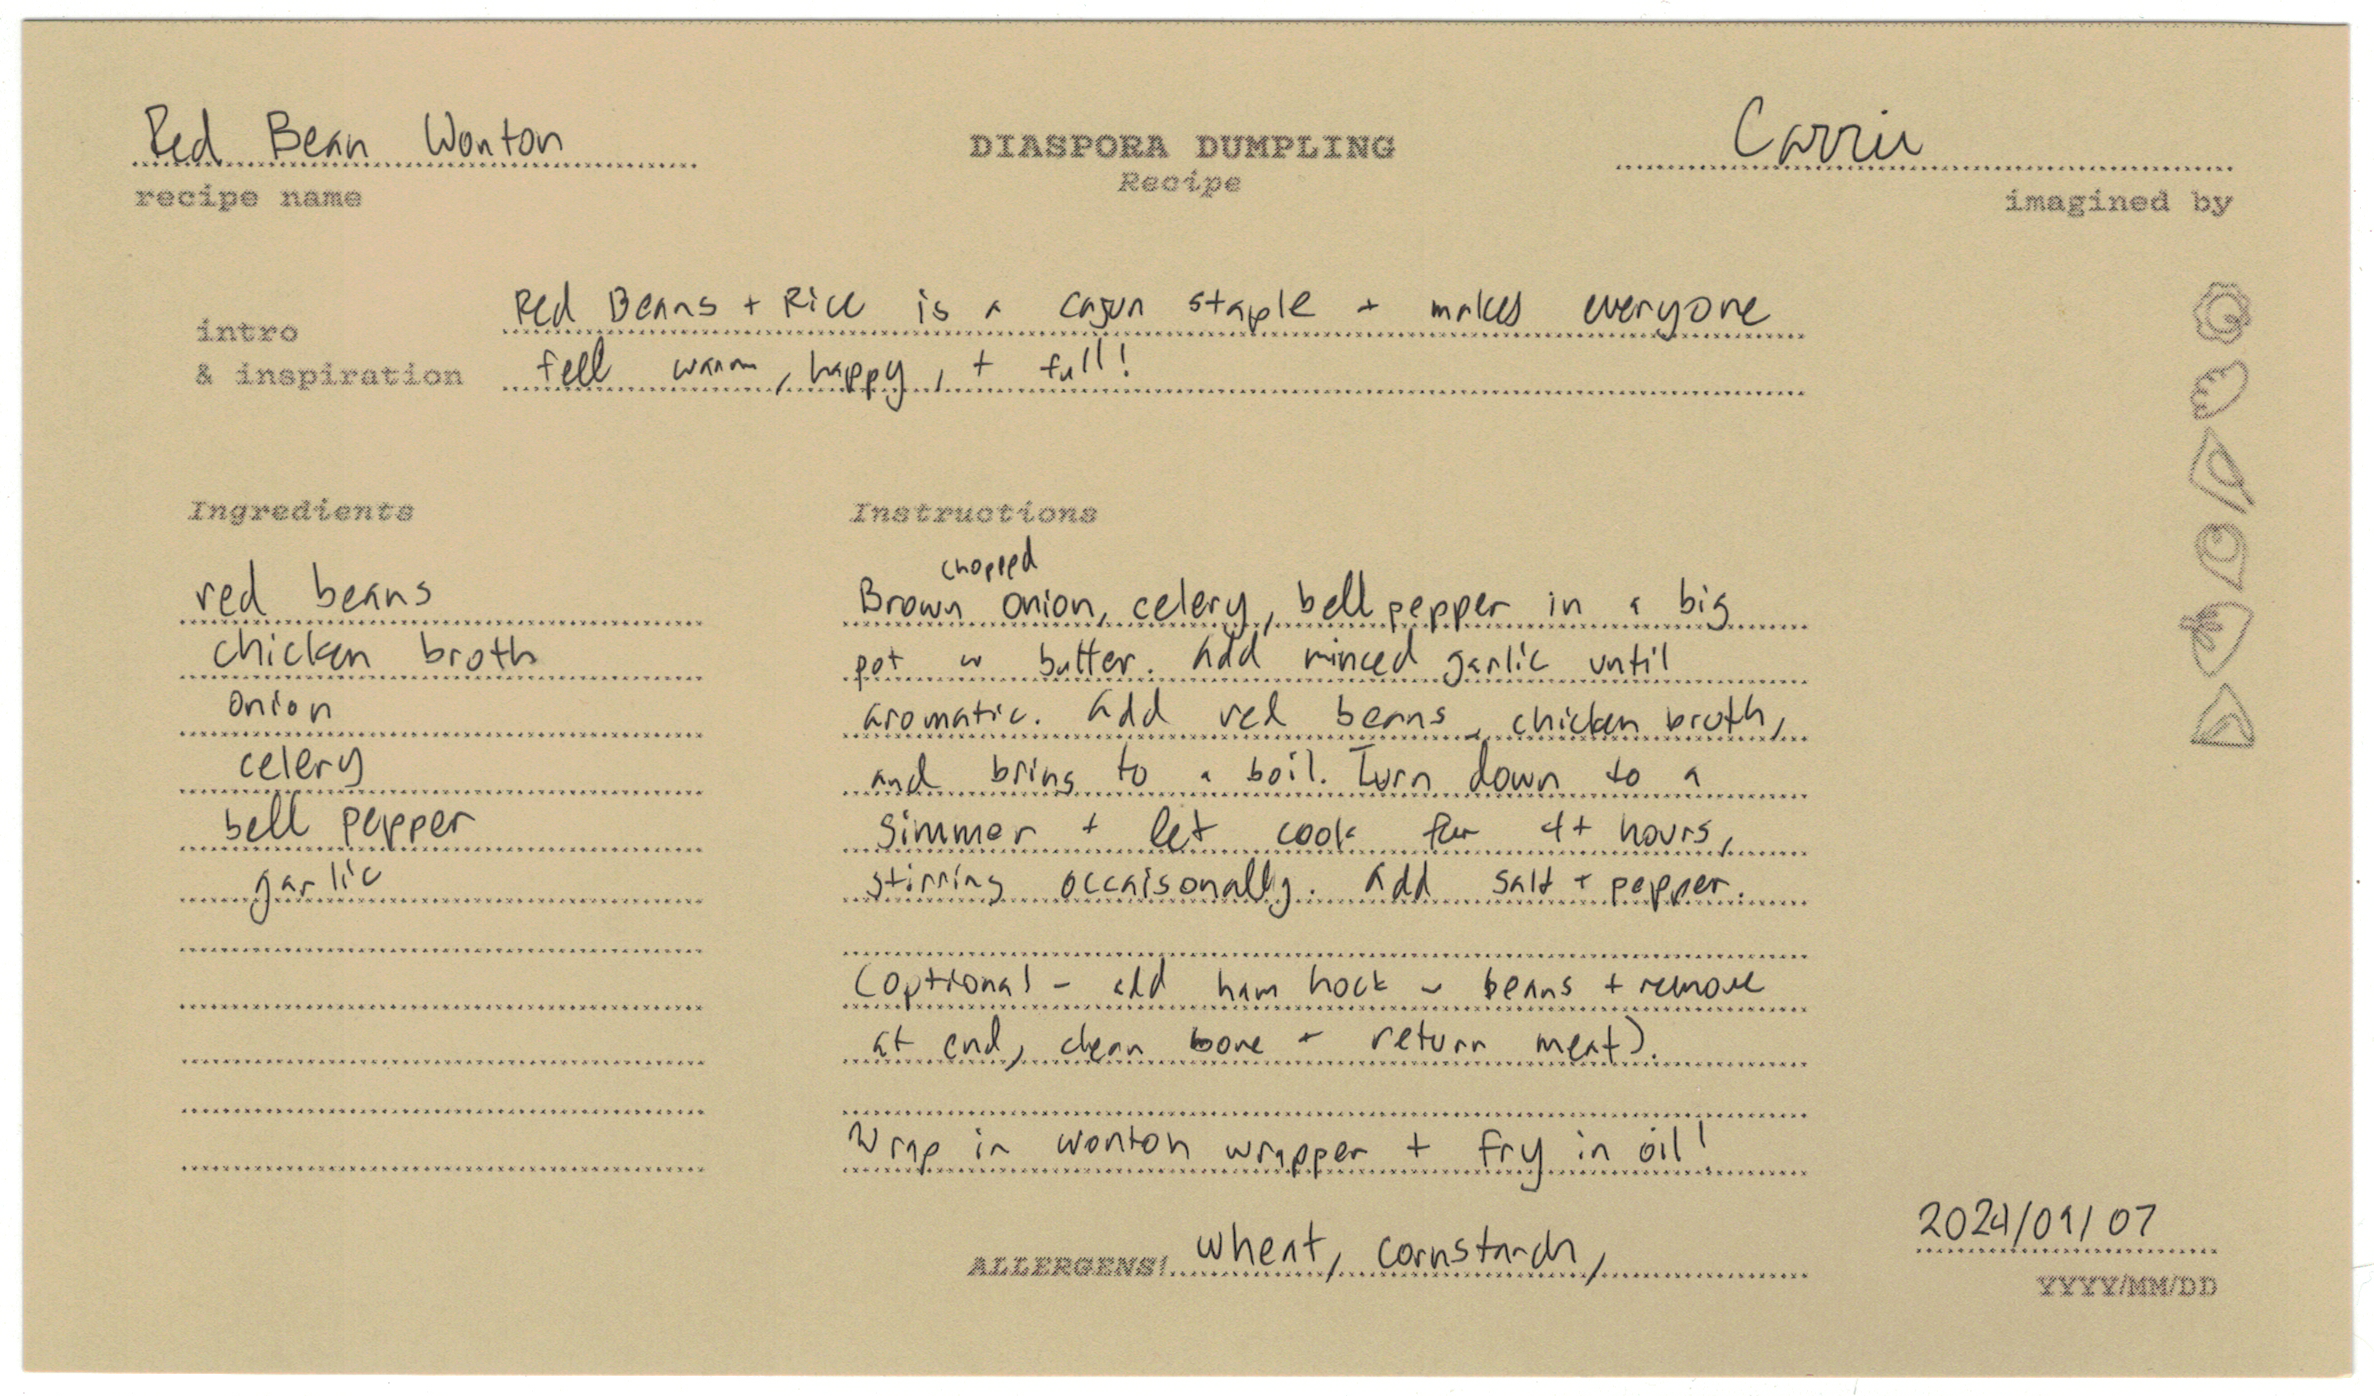 Red Bean Wonton
recipe name
DIASPORA DUMPLING
Recipe
Carrie
imagined by
intro
& inspiration
Red Beans + Rice is a cajun staple + makes everyone
fell warm, happy, + full!
Ingredients
red beans
chicken broth
onion
celery
bell pepper
garlic
Instructions
chopped
Brown onion, celery, bell pepper in a big
pot w butter. Add minced garlic until
aromatic. Add red beans, chicken broth,
and bring to a boil. Turn down to a
simmer + let cook for 4+ hours,
stirring occaisonally. Add salt + pepper.
(optional - add ham hock w beans + remove
at end, clean bone + return meat).
Wrap in wonton wrapper + fry in oil!
ALLERGENS! wheat, cornstarch,
2024/09/07
YYYY/MM/DD